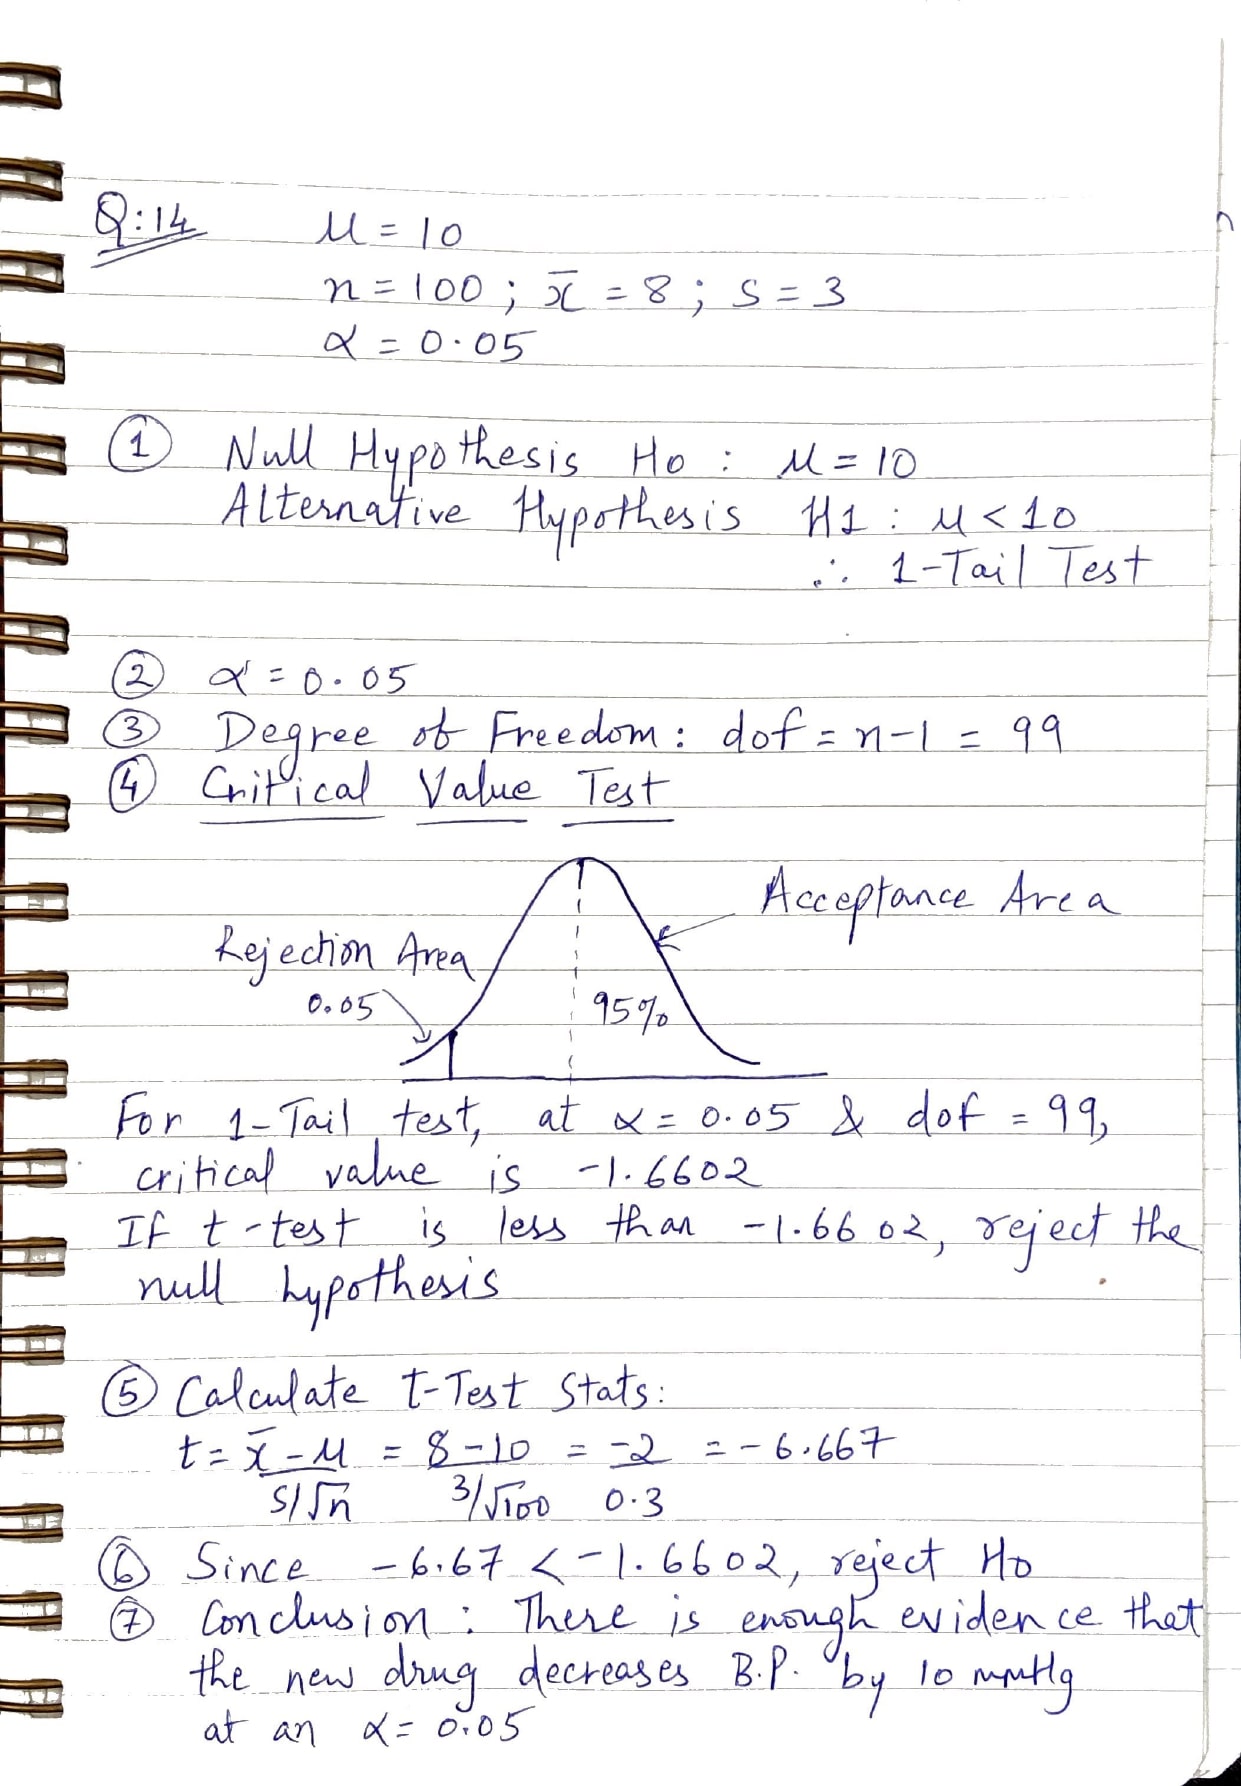 Q:14 μ = 10
n = 100 ; x̄ = 8 ; s = 3
α = 0.05
① Null Hypothesis Ho : μ = 10
Alternative Hypothesis H1 : μ < 10
∴ 1-Tail Test
② α = 0.05
③ Degree of Freedom : dof = n-1 = 99
④ Critical Value Test
Acceptance Area
Rejection Area
0.05
95%
For 1-Tail test, at α = 0.05 & dof = 99,
critical value is -1.6602
If t-test is less than -1.6602, reject the
null hypothesis
⑤ Calculate t-Test Stats:
t = x̄ - μ = 8 - 10 = -2 = - 6.667
s/√n 3/√100 0.3
⑥ Since -6.67 < -1.6602, reject Ho
⑦ Conclusion : There is enough evidence that
the new drug decreases B.P. by 10 mmHg
at an α = 0.05